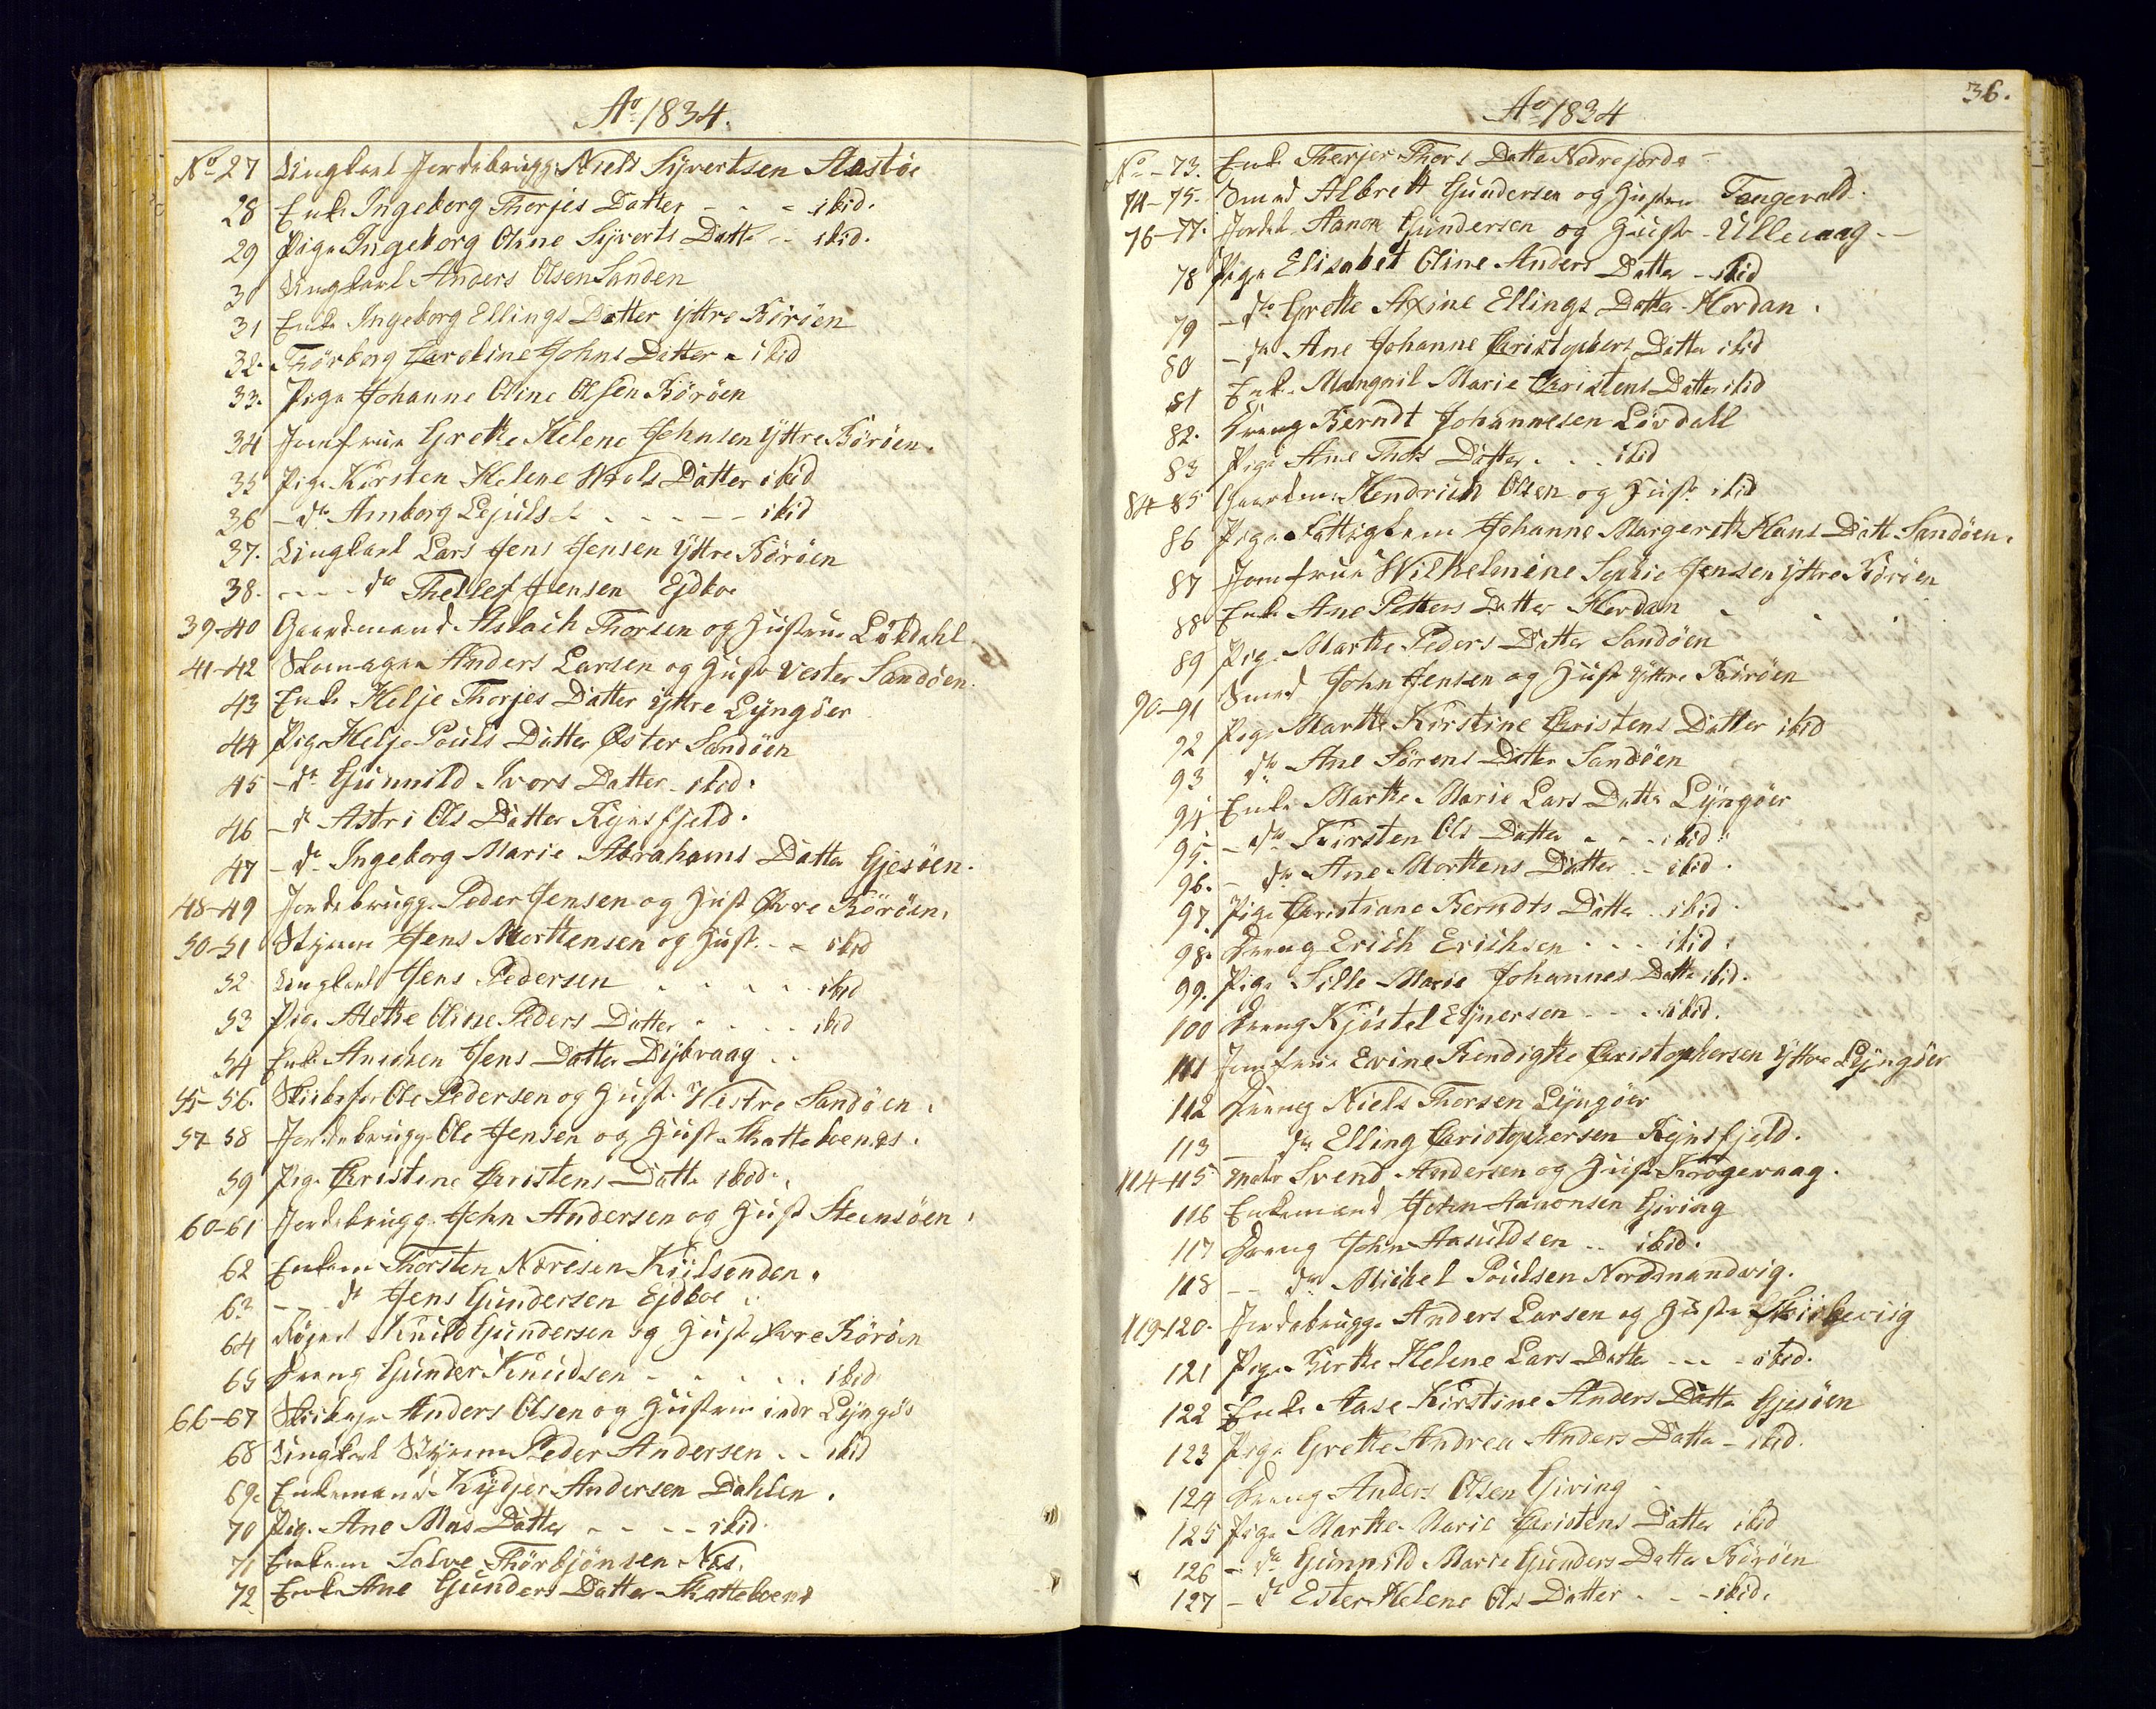 Ao 1834.
No 27 Ungkarl Jordebrugg. Niels Syvertsen Aastöe
28 Enke Ingeborg Therjes Datter - - - ibid.
29 Pige Ingeborg Oline Syverts Datt - - ibid.
30 Ungkarl Anders Olsen Sanden
31 Enke Ingeborg Ellings Datter yttre Böröen
32. Thörborg Caroline Johns Datter - ibid
33. Pige Johanne Oline Olsen Böröen
34 Jomfrue Grethe Helene Johnsen Yttre Böröen.
35 Pige Kirsten Helene Niels Datter ibid
36 - do Amborg Lejuls - - - - - ibid
37. Ungkarl Lars Jens Jensen Yttre Böröen
38. - - - do Thellef Jensen Ejdboe
39-40 Gaardmand Aslach Thorsen og Hustrue Lökdahl
41-42 Skomager Anders Larsen og Hustr Vester Sandöen.
43 Enke Helje Thorjes Datter Yttre Lyngöer
44 Pige Helje Pouls Datter Øster Sandöen
45 - do Gunnild Ivors Datter - ibid.
46 - do Astri Ols Datter Rejnsfjeld.
47 - do Ingeborg Marie Abrahams Datter Gjesöen.
48-49 Jordebrugg. Peder Jensen og Hust Øvre Böröen.
50-51 Styrm Jens Morttensen og Hust. - - ibid
52 Ungkarl Jens Pedersen - - - - ibid
53 Pige Mette Oline Peders Datter - - - - ibid
54 Enke Jens Datter Dybvaag - -
55-56. Ole Pedersen og Hust. Vestre Sandöen.
57-58 Jordebrugg. Ole Jensen og Hust. Skatteboends.
59 Pige Christine Christens Datte ibid.
60-61 Jordebrugg. John Andersen og Hust Steensöen.
62 Enkem Thorsten Næresen Kiilsenden.
63 - - do Jens Gundersen Ejdboe
64 Knud Gundersen og Hust Øvre Böröen
65 Dreng Gunder Knudsen - - - - - ibid
66-67 Anders Olsen og Hustrue indr Lyngör
68 Ungkarl Styrm Peder Andersen - - ibid
69. Enkemand Kydjer Andersen Dahlen.
70 Pig. Ane Mas Datter - - - - ibid.
71 Enkem Salve Thörbjönsen Næs.
72. Enke Ane Gunders Datter Skatteboend
36.
Ao 1834
No - 73. Enke Therjer Thors Datte Nedrejorde -
74-75. Smed Albrett Gundersen og Hustru Tangevald.
76-77. Jordeb. Aanon Gundersen og Hustr - Ullevaag. -
78 Pige Elisabet Oline Anders Datte - ibid
79 - do Grethe Axine Ellings Datte Hordan.
80 - do Ane Johanne Christophers Datte ibid
81 Enke Mangnil Marie Christens Datter ibid
82. Dreng Berndt Johannesen Lövdahl
83 Pige Ane Thors Datter - - - ibid
84-85 Gaardm Hendrich Olsen og Hust. ibid
86 Pige Fattiglem Johanne Margerethe Hans Datt Sandöen.
87 Jomfrue Wilhelmine Sophie Jensen Yttre Böröen
88 Enke Ane Petters Datter Hordan
89 Pige Marthe Peders Datter Sandöen
90-91 Smed John Jensen og Hust Yttre Böröen
92 Pige Marthe Kirstine Christens Datter ibid
93 do Ane Sörens Datter Sandöen
94 Enke Marthe Marie Lars Datte Lyngöer
95. - do Kirsten Ols Datter - - - ibid.
96. - do Ane Morttens Datter - - ibid.
97. Pige Christiane Berndts Datte - ibid
98. Dreng Erich Erichsen - - - ibid.
99. Pige Sille Marie Johannes Datte ibid.
100 Dreng Kjöstel Ejnersen - - - ibid.
111 Jomfrue Evine Bendigthe Christophersen Yttre Lyngöer
112 Dreng Niels Thorsen Lyngöer
113 - do Elling Christophersen Rejnsfjeld.
114-115 Svend Andersen og Hust Krogevaag.
116 Enkemand John Aanonsen Giving
117 Dreng John Aasuldsen - - ibid.
118 - - do Michel Poulsen Nordmandvig.
119-120. Jordebrugge Anders Larsen og Hustr Skiskeviig
121 Pige Berthe Helene Lars Datter - - - ibid.
122 Enke Aase Kirstine Anders Datte Gjesöen
123 Pige Grethe Andrea Anders Datte - ibid.
124 Dreng Anders Olsen Giving
125 Pige Marthe Marie Christens Datter ibid
126 - do Gunnild Marie Gunders Datte Böröen
127 - do Ester Helene Ols Datter - - - ibid.